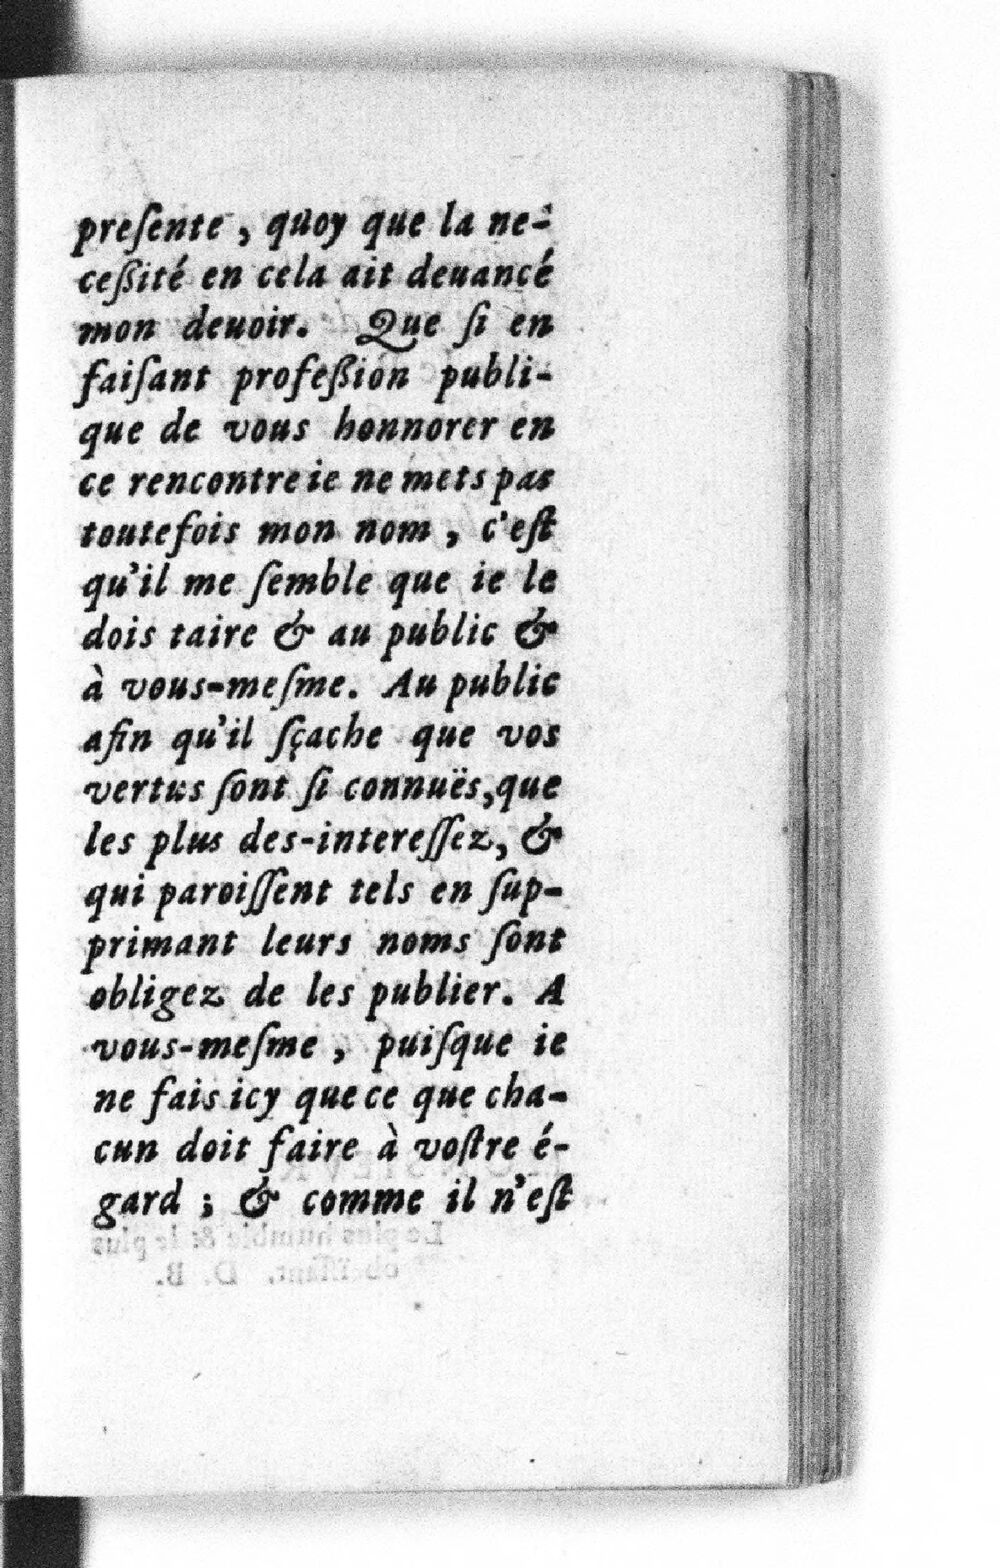 preſente, quoy que la ne-
ceßité en cela ait deuancé
mon deuoir. Que ſi en
faiſant profeßion publi-
que de vous honnorer en
ce rencontre ie ne mets pas
toutefois mon nom, c'eſt
qu'il me ſemble que ie le
dois taire & au public &
à vous-meſme. Au public
afin qu'il ſçache que vos
vertus ſont ſi connuës, que
les plus des-intereſſez, &
qui paroiſſent tels en ſup-
primant leurs noms ſont
obligez de les publier. A
vous-meſme, puiſque ie
ne fais icy que ce que cha-
cun doit faire à voſtre é-
gard ; & comme il n'eſt